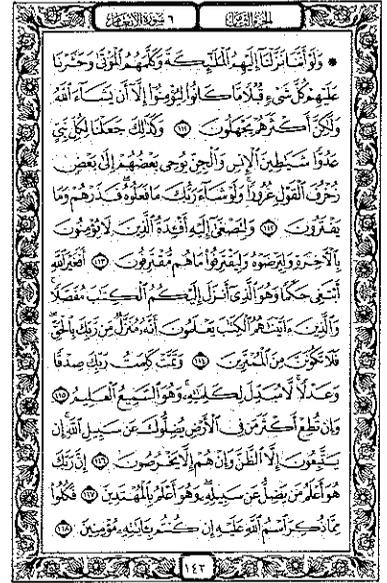 الجزء الثامن
٦ سورة الأنعام
۞ وَلَوْ أَنَّنَا نَزَّلْنَا إِلَيْهِمُ الْمَلَائِكَةَ وَكَلَّمَهُمُ الْمَوْتَىٰ وَحَشَرْنَا
عَلَيْهِمْ كُلَّ شَيْءٍ قُبُلًا مَا كَانُوا لِيُؤْمِنُوا إِلَّا أَن يَشَاءَ اللَّهُ
وَلَٰكِنَّ أَكْثَرَهُمْ يَجْهَلُونَ ١١١ وَكَذَٰلِكَ جَعَلْنَا لِكُلِّ نَبِيٍّ
عَدُوًّا شَيَاطِينَ الْإِنسِ وَالْجِنِّ يُوحِي بَعْضُهُمْ إِلَىٰ بَعْضٍ
زُخْرُفَ الْقَوْلِ غُرُورًا وَلَوْ شَاءَ رَبُّكَ مَا فَعَلُوهُ فَذَرْهُمْ وَمَا
يَفْتَرُونَ ١١٢ وَلِتَصْغَىٰ إِلَيْهِ أَفْئِدَةُ الَّذِينَ لَا يُؤْمِنُونَ
بِالْآخِرَةِ وَلِيَرْضَوْهُ وَلِيَقْتَرِفُوا مَا هُم مُّقْتَرِفُونَ ١١٣ أَفَغَيْرَ اللَّهِ
أَبْتَغِي حَكَمًا وَهُوَ الَّذِي أَنزَلَ إِلَيْكُمُ الْكِتَابَ مُفَصَّلًا
وَالَّذِينَ آتَيْنَاهُمُ الْكِتَابَ يَعْلَمُونَ أَنَّهُ مُنَزَّلٌ مِّن رَّبِّكَ بِالْحَقِّ
فَلَا تَكُونَنَّ مِنَ الْمُمْتَرِينَ ١١٤ وَتَمَّتْ كَلِمَتُ رَبِّكَ صِدْقًا
وَعَدْلًا لَّا مُبَدِّلَ لِكَلِمَاتِهِ وَهُوَ السَّمِيعُ الْعَلِيمُ ١١٥
وَإِن تُطِعْ أَكْثَرَ مَن فِي الْأَرْضِ يُضِلُّوكَ عَن سَبِيلِ اللَّهِ إِن
يَتَّبِعُونَ إِلَّا الظَّنَّ وَإِنْ هُمْ إِلَّا يَخْرُصُونَ ١١٦ إِنَّ رَبَّكَ
هُوَ أَعْلَمُ مَن يَضِلُّ عَن سَبِيلِهِ وَهُوَ أَعْلَمُ بِالْمُهْتَدِينَ ١١٧ فَكُلُوا
مِمَّا ذُكِرَ اسْمُ اللَّهِ عَلَيْهِ إِن كُنتُم بِآيَاتِهِ مُؤْمِنِينَ ١١٨
١٤٢